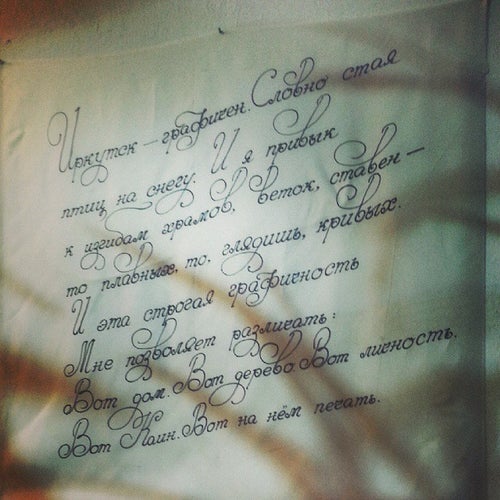 Иркутск — графичен. Словно стая
птиц на снегу. И я привык
к изгибам храмов, веток, ставен —
то плавных, то, глядишь, кривых.
И эта строгая графичность
Мне позволяет различать:
Вот дом. Вот дерево. Вот личность.
Вот Каин. Вот на нём печать.